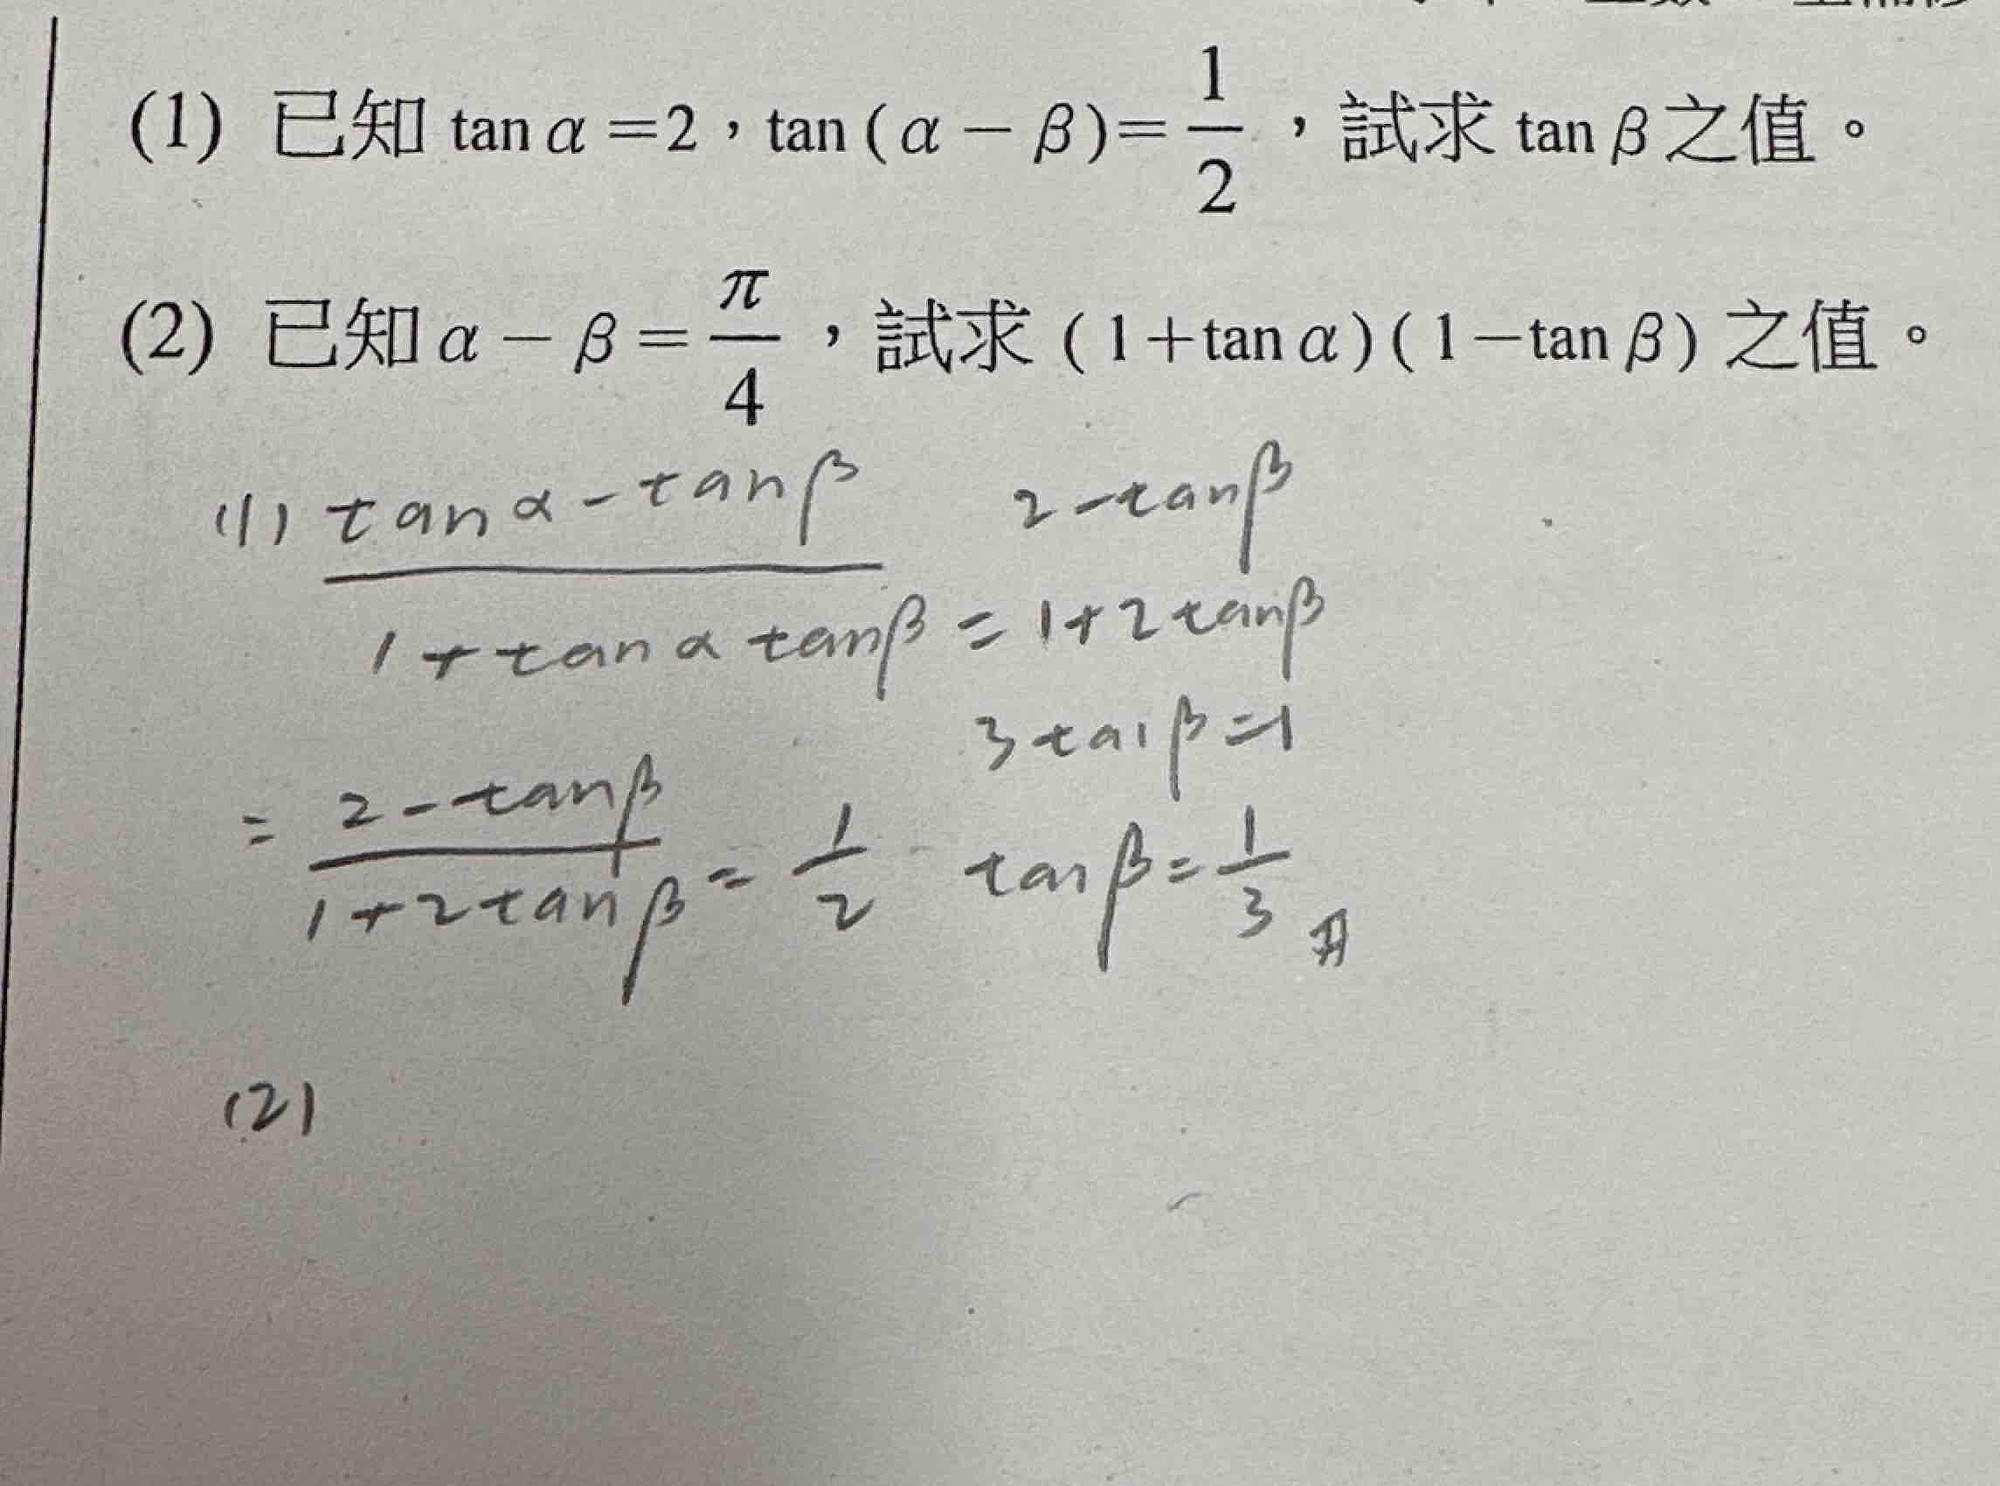 (1) 已知 tan α =2，tan ( α − β )= 1/2 ，試求 tan β 之值。
(2) 已知 α − β = π/4 ，試求 ( 1+tan α ) ( 1−tan β ) 之值。
(1) tanα - tanβ
1 + tanα tanβ
= 2 - tanβ / 1+2tanβ = 1/2
2 - tanβ
= 1+2tanβ
3tanβ=1
tanβ= 1/3
(2)